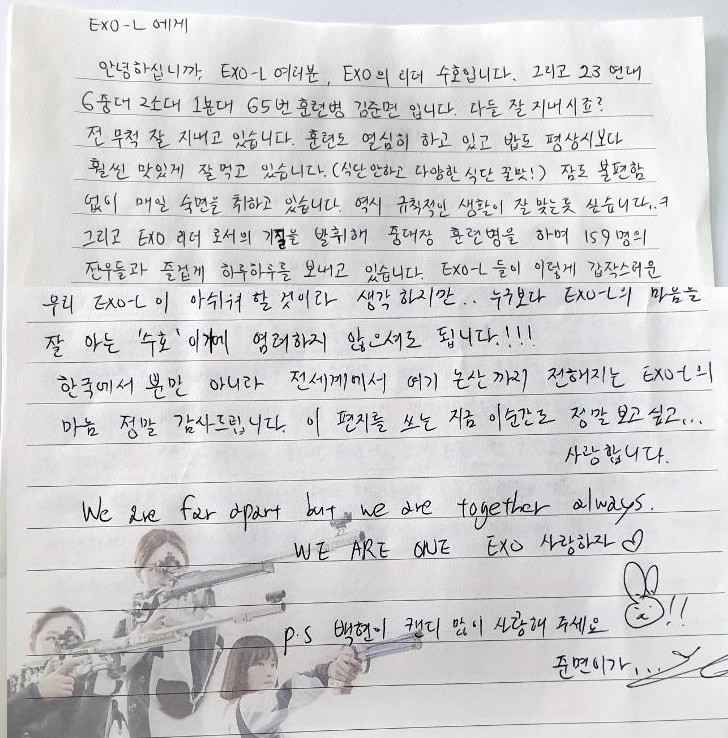 EXO-L 에게
안녕하십니까, EXO-L 여러분, EXO의 리더 수호입니다. 그리고 23연대
6중대 2소대 1분대 65번 훈련병 김준면 입니다. 다들 잘 지내시죠?
전 무척 잘 지내고 있습니다. 훈련도 열심히 하고 있고 밥도 평상시보다
훨씬 맛있게 잘먹고 있습니다.(식단안하고 다양한 식단 꿀맛!) 잠도 불편함
없이 매일 숙면을 취하고 있습니다. 역시 규칙적인 생활이 잘 맞는듯 싶습니다..ㅋ
그리고 EXO 리더 로서의 기질을 발휘해 중대장 훈련병을 하며 159명의
전우들과 즐겁게 하루하루를 보내고 있습니다. EXO-L 들이 이렇게 갑작스러운
우리 EXO-L이 아쉬워 할 것이라 생각 하지만.. 누구보다 EXO-L의 마음을
잘 아는 '수호' 이기에 염려하지 않으셔도 됩니다.!!!
한국에서 뿐만 아니라 전세계에서 여기 논산까지 전해지는 EXO-L의
마음 정말 감사드립니다. 이 편지를 쓰는 지금 이순간도 정말 보고 싶고...
사랑합니다.
We are far apart but we are together always.
WE ARE ONE EXO 사랑하자 ♡
p.s 백현이 캔디 많이 사랑해 주세요 !!
준면이가...